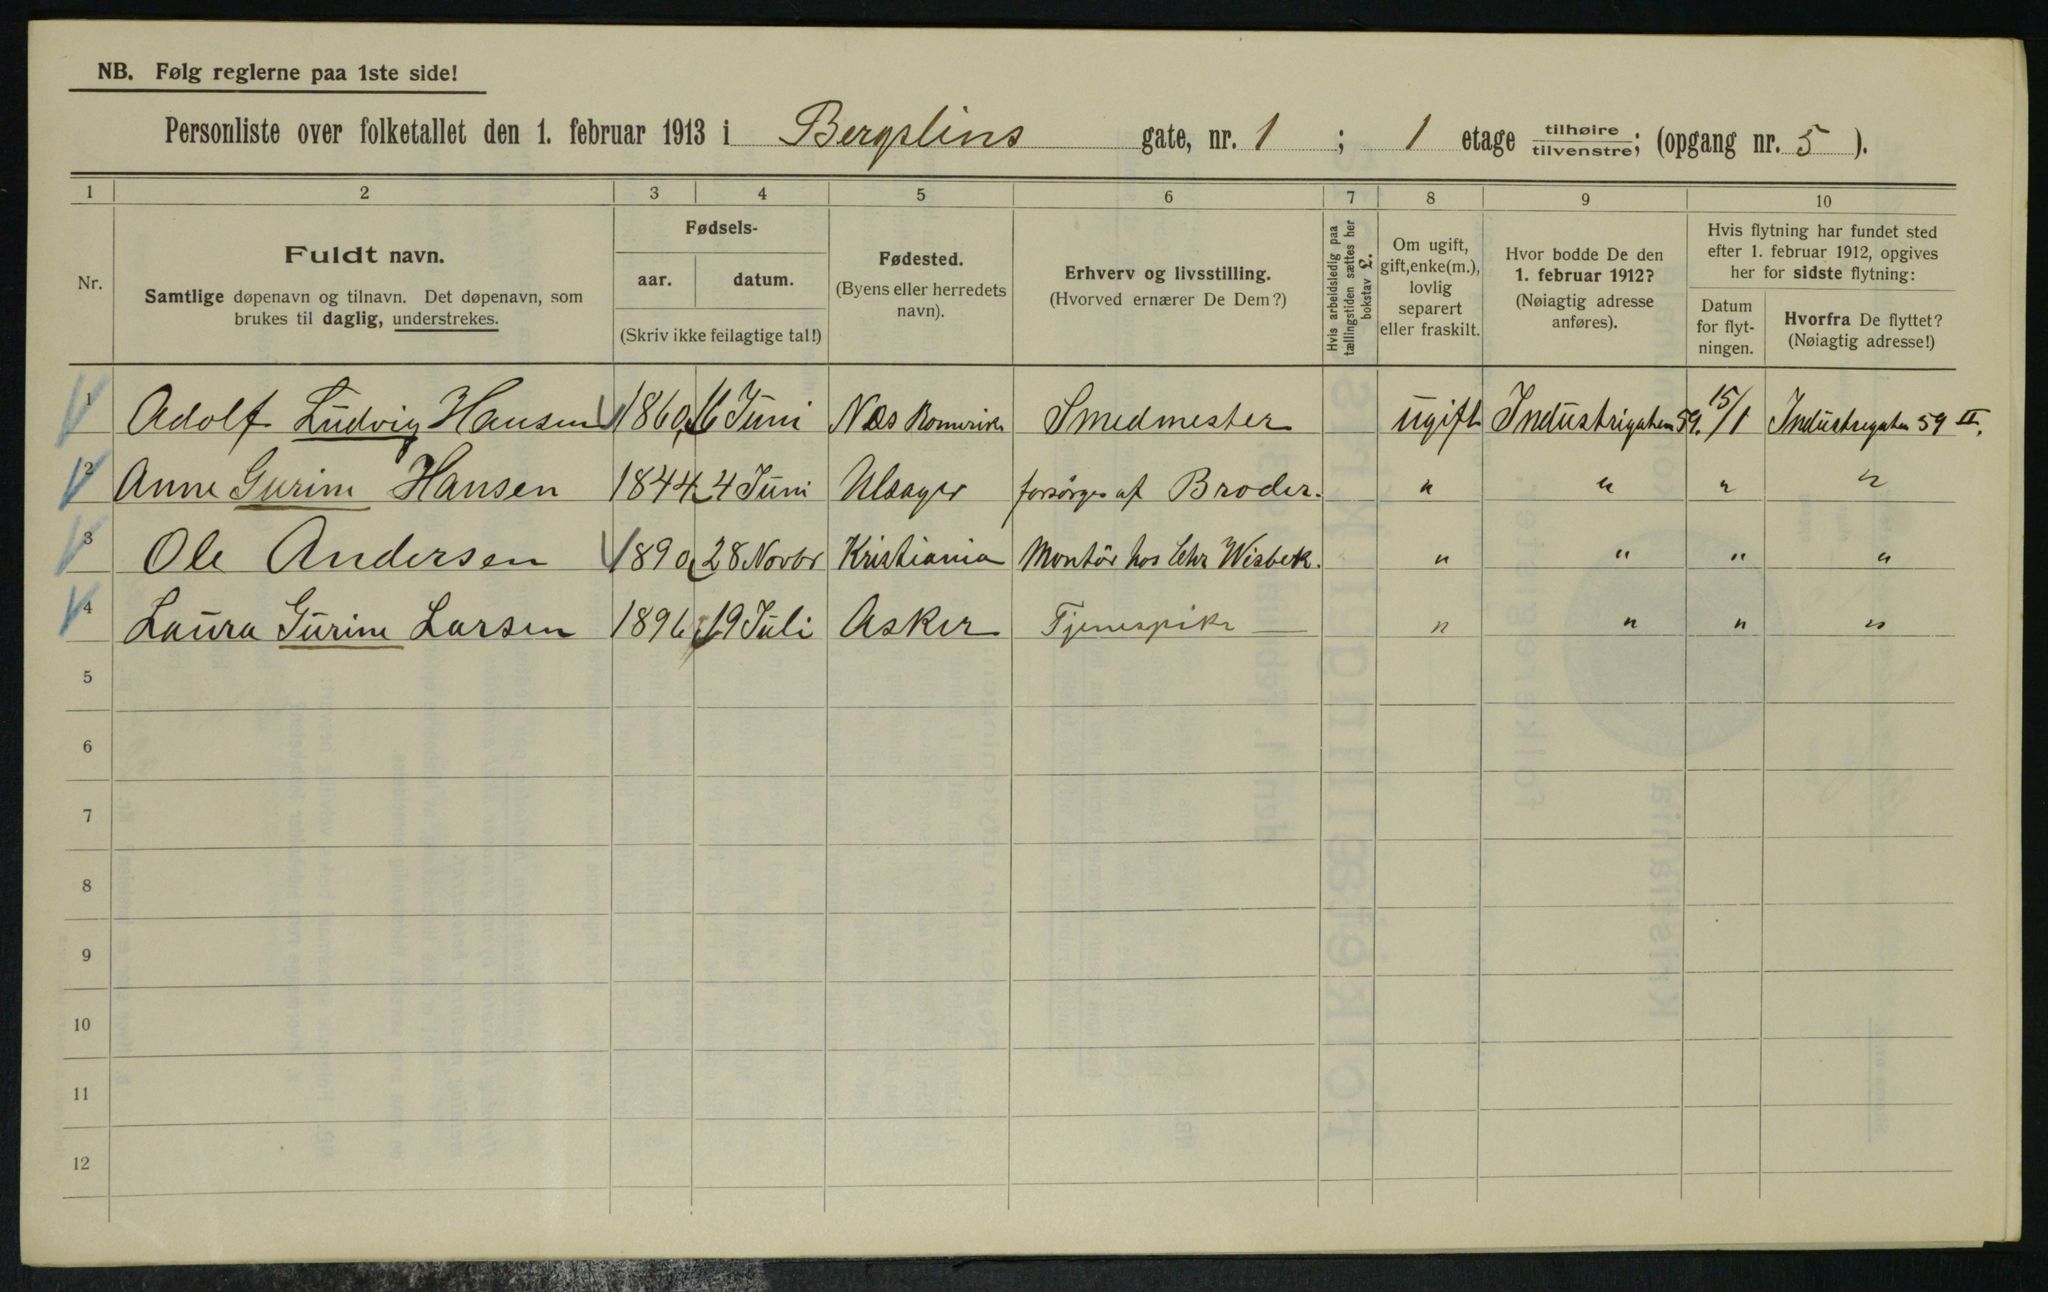 NB. Følg reglerne paa 1ste side!
Personliste over folketallet den 1. februar 1913 i Bergslins gate, nr. 1 ; 1 etage tilhøire tilvenstre; (opgang nr. 5 ).
1 2 3 4 5 6 7 8 9 10
Nr.
Fuldt navn.
Samtlige døpenavn og tilnavn. Det døpenavn, som
brukes til daglig, understrekes.
Fødsels-
aar. datum.
(Skriv ikke feilagtige tal!)
Fødested.
(Byens eller herredets
navn).
Erhverv og livsstilling.
(Hvorved ernærer De Dem?)
Hvis arbeidsledig paa
tællingstiden sættes her
bokstav L.
Om ugift,
gift, enke(m.),
lovlig
separert
eller fraskilt.
Hvor bodde De den
1. februar 1912?
(Nøiagtig adresse
anføres).
Hvis flytning har fundet sted
efter 1. februar 1912, opgives
her for sidste flytning:
Datum
for flyt-
ningen.
Hvorfra De flyttet?
(Nøiagtig adresse!)
1 Adolf Ludvig Hansen 1860 16 Juni Næs Romerike Smedmester ugift Industrigaten 59. 15/1 Industrigaten 59 II.
2 Anne Gurine Hansen 1844 4 Juni Ulsager forsørges af Broder. " " " "
3 Ole Andersen 1890 28 Novbr Kristiania Montør hos Chr Wisbek. " " " "
4 Laura Gurine Larsen 1896 19 Juli Asker Tjenespike — " " " "
5
6
7
8
9
10
11
12